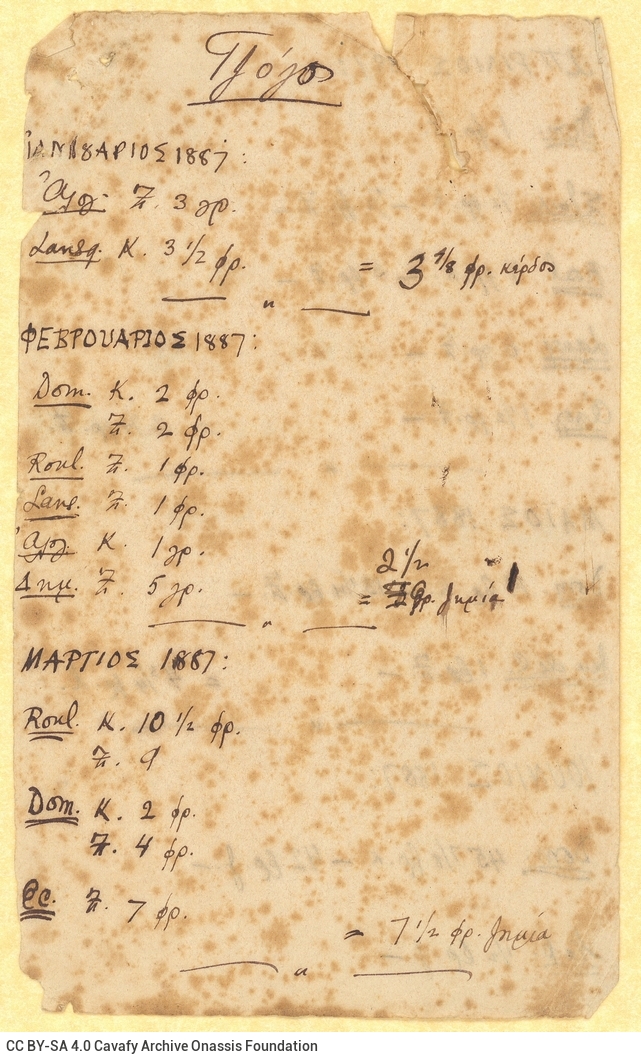 Τζόγος
ΙΑΝΟΥΑΡΙΟΣ 1887:
Ζ. 3 γρ.
Lansq. Κ. 3 1/2 φρ. = 3 4/8 φρ. κέρδος
〃
ΦΕΒΡΟΥΑΡΙΟΣ 1887:
Dom. Κ. 2 φρ.
Ζ. 2 φρ.
Roul. Ζ. 1 φρ.
Lans. Ζ. 1 φρ.
Κ. 1 γρ.
Δημ. Ζ. 5 γρ.
2 1/2
= φρ. ζημία
〃
ΜΑΡΤΙΟΣ 1887:
Roul. Κ. 10 1/2 φρ.
Ζ. 9
Dom. Κ. 2 φρ.
Ζ. 4 φρ.
Ec. Ζ. 7 φρ. = 7 1/2 φρ. ζημία
〃
CC BY-SA 4.0 Cavafy Archive Onassis Foundation